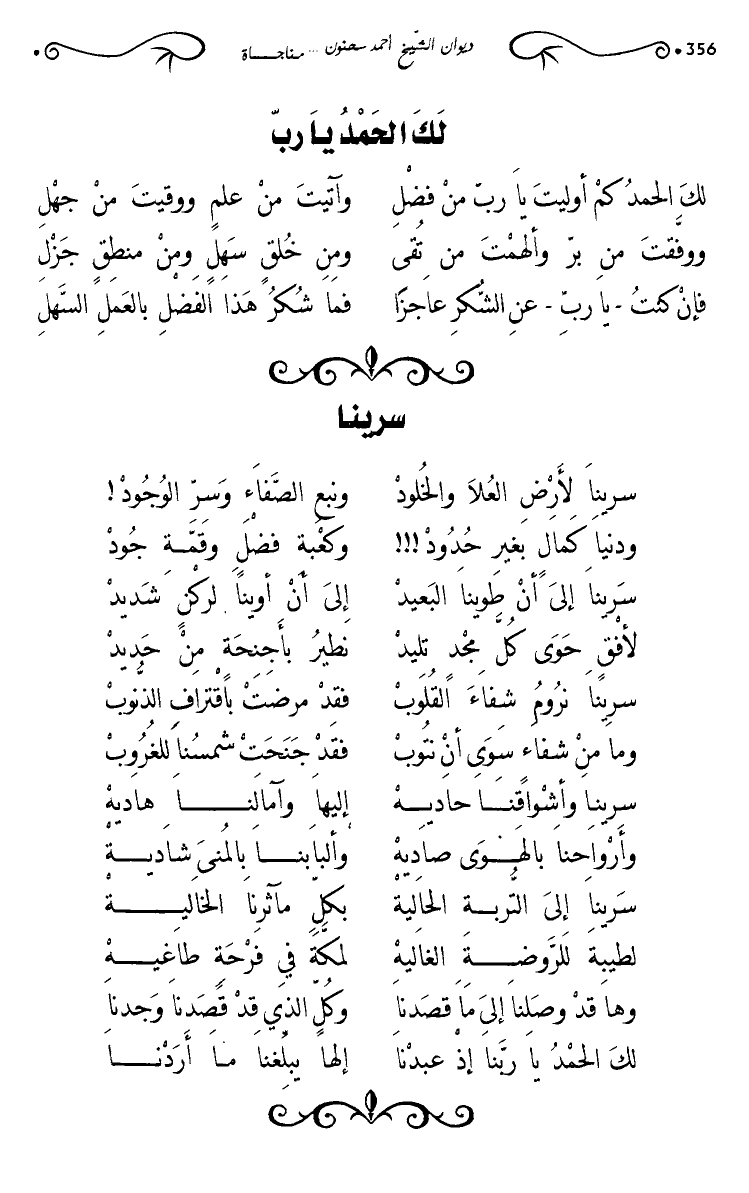 356 ديوان الشّيخ أحمد سحنون ... مناجاة
لَكَ الحَمْدُ يا رَبّ
لكَ الحمدُ كمْ أوليتَ يا ربّ منْ فضْلِ وآتيتَ منْ علمٍ ووقيتَ منْ جهْلِ
ووفّقتَ من برّ وألهمْتَ من تُقى ومن خُلقٍ سَهلٍ ومنْ منطقٍ جَزْلِ
فإنْ كنتُ - يا ربّ - عنِ الشّكرِ عاجزًا فما شُكرُ هَذا الفضْلِ بالعَملِ السّهْلِ
سرينا
سرينا لأَرْضِ العُلاَ والخُلودْ ونبع الصَّفاءِ وَسرّ الوُجُودْ !
ودنيا كمال بغير حُدُودْ !!! وكعْبة فضْلٍ وقمَّة جُودْ
سَرينا إلىَ أنْ طَوينا البَعيدْ إلىَ أنْ أوينا لركْنٍ شَديدْ
لأفْقٍ حَوَى كلَّ مجْد تليدْ نطيرُ بأَجنحَة منْ حَديدْ
سرينا نرُومُ شفاءَ القُلوبْ فقدْ مرضتْ باقْترافِ الذّنوبْ
وما منْ شفاء سوَى أنْ نتُوبْ فقدْ جَنَحَتْ شمسُنا للغُرُوبْ
سرينا وأشْواقُنا حاديهْ إليها وآمالنا هاديهْ
وأرْواحنا بالهوَى صاديهْ وألبابنا بالمُنىَ شاديهْ
سَرينا إلىَ التّربة الحاليهْ بكلّ مآثرنا الخاليهْ
لطيبة للرَّوضة الغاليهْ لمكّةَ في فرْحَةٍ طاغيهْ
وها قدْ وصَلنا إلىَ ما قصَدنا وكلّ الذي قدْ قصَدنا وَجدنا
لكَ الحمْدُ يا ربَّنا إذْ عبدْنا إلهاً يبلّغنا ما أَردْنا